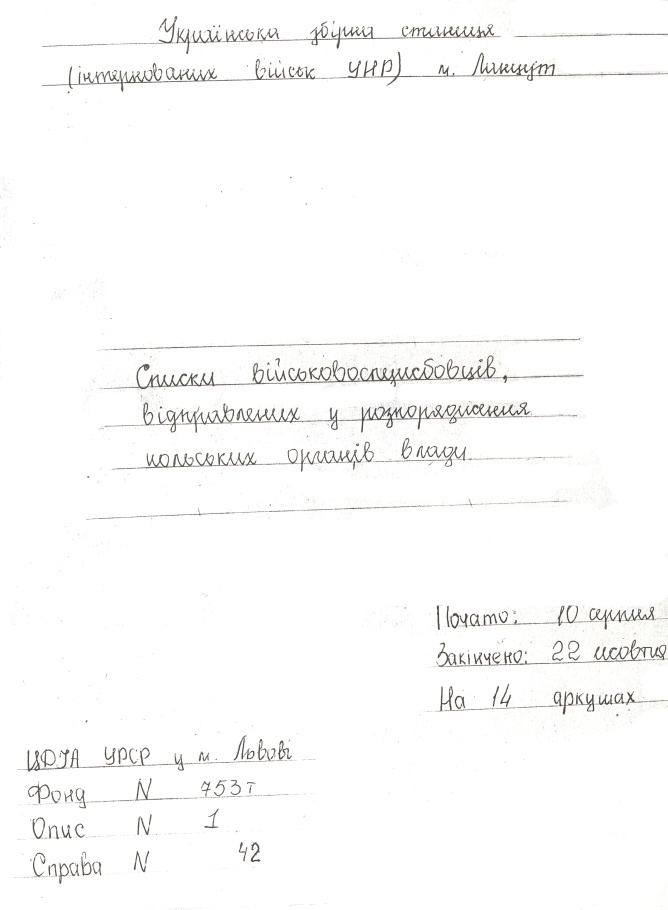 Українська збірна станиця
(інтернованих військ УНР) м. Ланцут
Списки військовослужбовців,
відправлених у розпорядження
польських органів влади
Почато: 10 серпня
Закінчено: 22 жовтня
На 14 аркушах
ЦДІА УРСР у м. Львові
Фонд N 753т
Опис N 1
Справа N 42